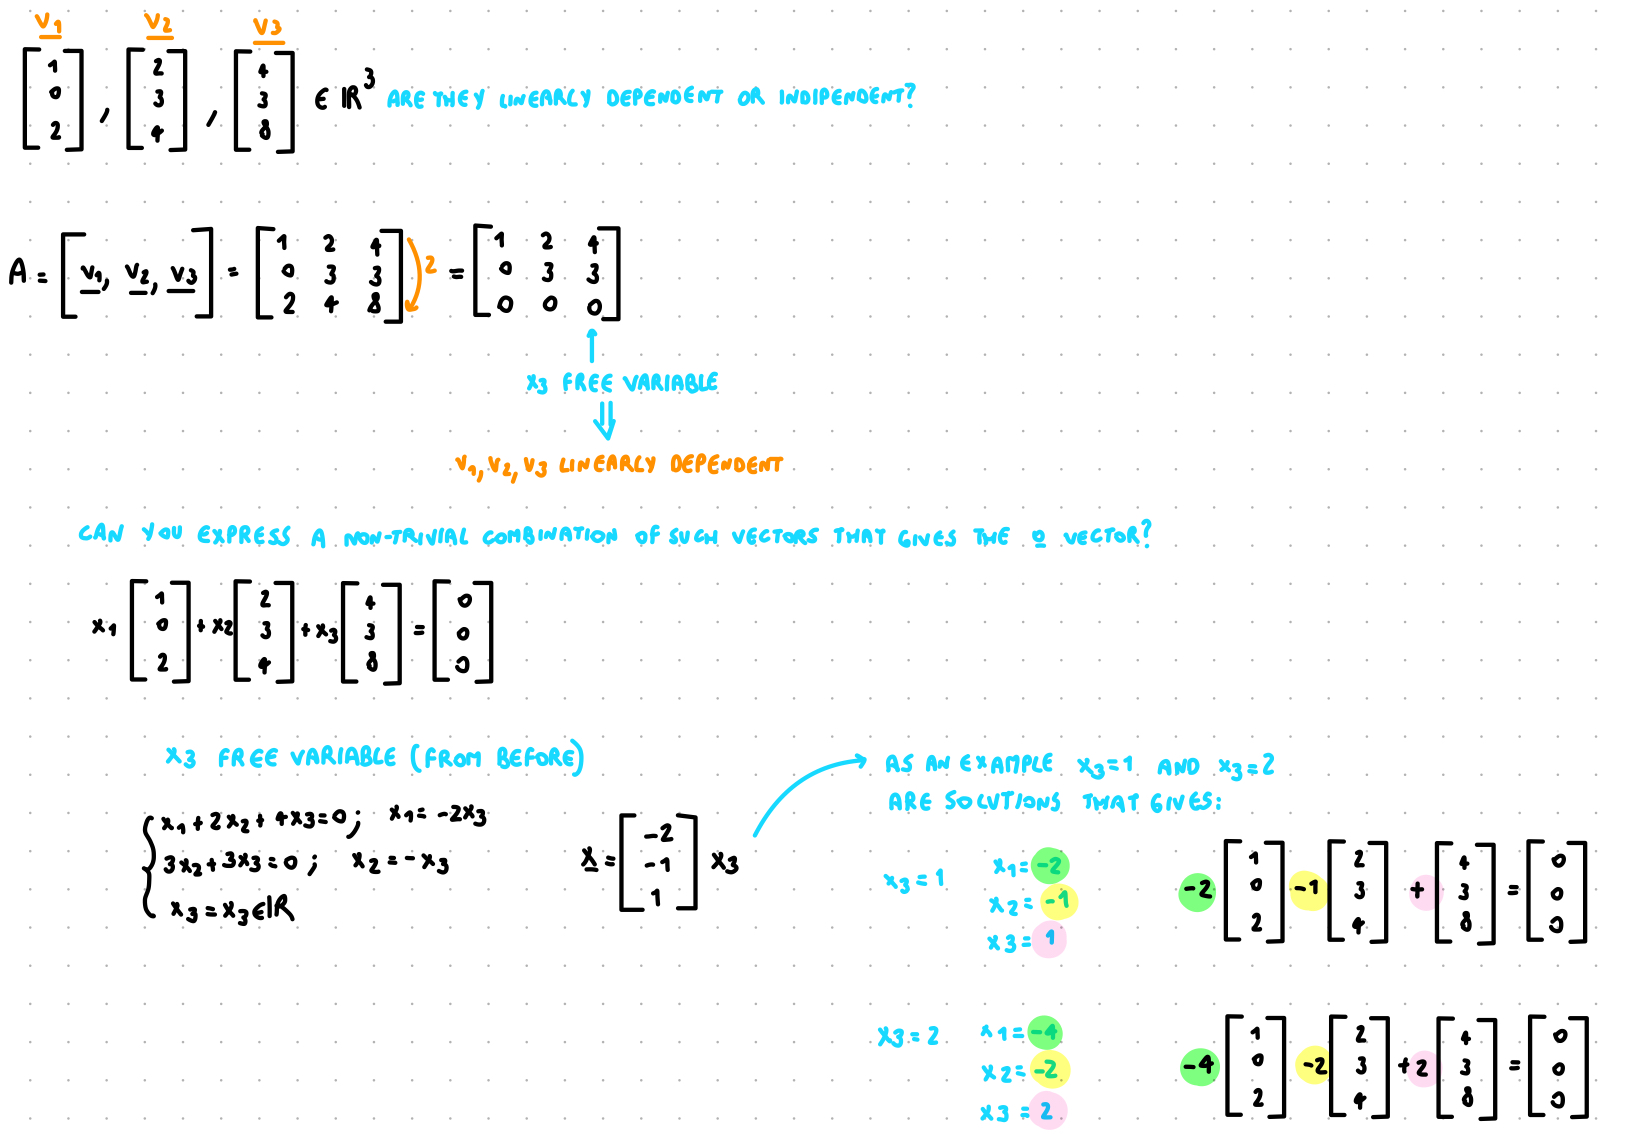 v1 v2 v3
[1 0 2], [2 3 4], [4 3 8] ∈ ℝ³ ARE THEY LINEARLY DEPENDENT OR INDIPENDENT?
A = [v1, v2, v3] = [1 2 4; 0 3 3; 2 4 8] 2 = [1 2 4; 0 3 3; 0 0 0]
x3 FREE VARIABLE
⇓
v1, v2, v3 LINEARLY DEPENDENT
CAN YOU EXPRESS A NON-TRIVIAL COMBINATION OF SUCH VECTORS THAT GIVES THE 0 VECTOR?
x1 [1 0 2] + x2 [2 3 4] + x3 [4 3 8] = [0 0 0]
x3 FREE VARIABLE (FROM BEFORE)
x1 + 2x2 + 4x3 = 0; x1 = -2x3
3x2 + 3x3 = 0; x2 = -x3
x3 = x3 ∈ ℝ
x = [-2 -1 1] x3
AS AN EXAMPLE x3=1 AND x3=2
ARE SOLUTIONS THAT GIVES:
x3 = 1
x1 = -2
x2 = -1
x3 = 1
-2 [1 0 2] -1 [2 3 4] + [4 3 8] = [0 0 0]
x3 = 2
x1 = -4
x2 = -2
x3 = 2
-4 [1 0 2] -2 [2 3 4] +2 [4 3 8] = [0 0 0]